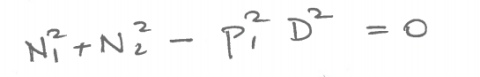 N₁² + N₂² − P₁² D² = 0